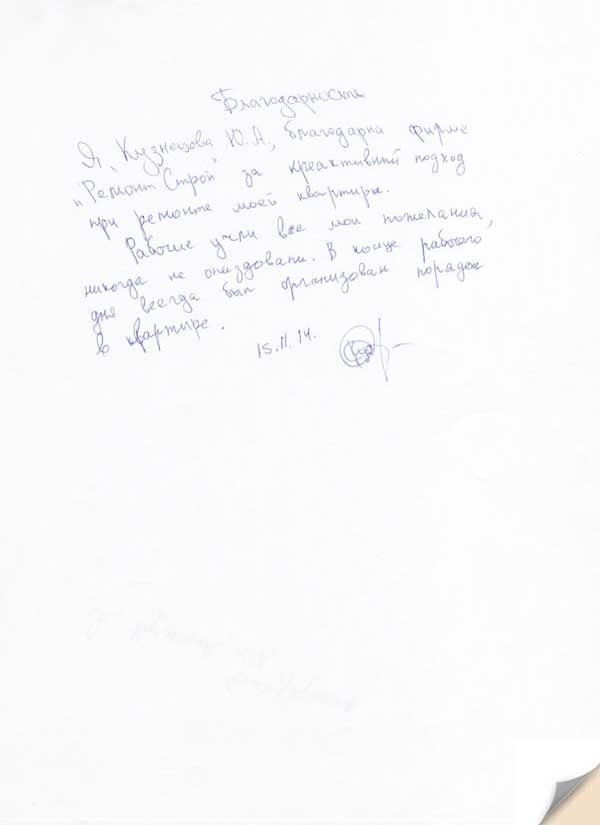 Благодарность
Я, Кузнецова Ю.А., благодарна фирме
"РемонтСтрой" за креактивный подход
при ремонте моей квартиры.
Рабочие учли все мои пожелания,
никогда не опаздовали. В конце рабочего
дня всегда был организован порядок
в квартире.
15.11.14.